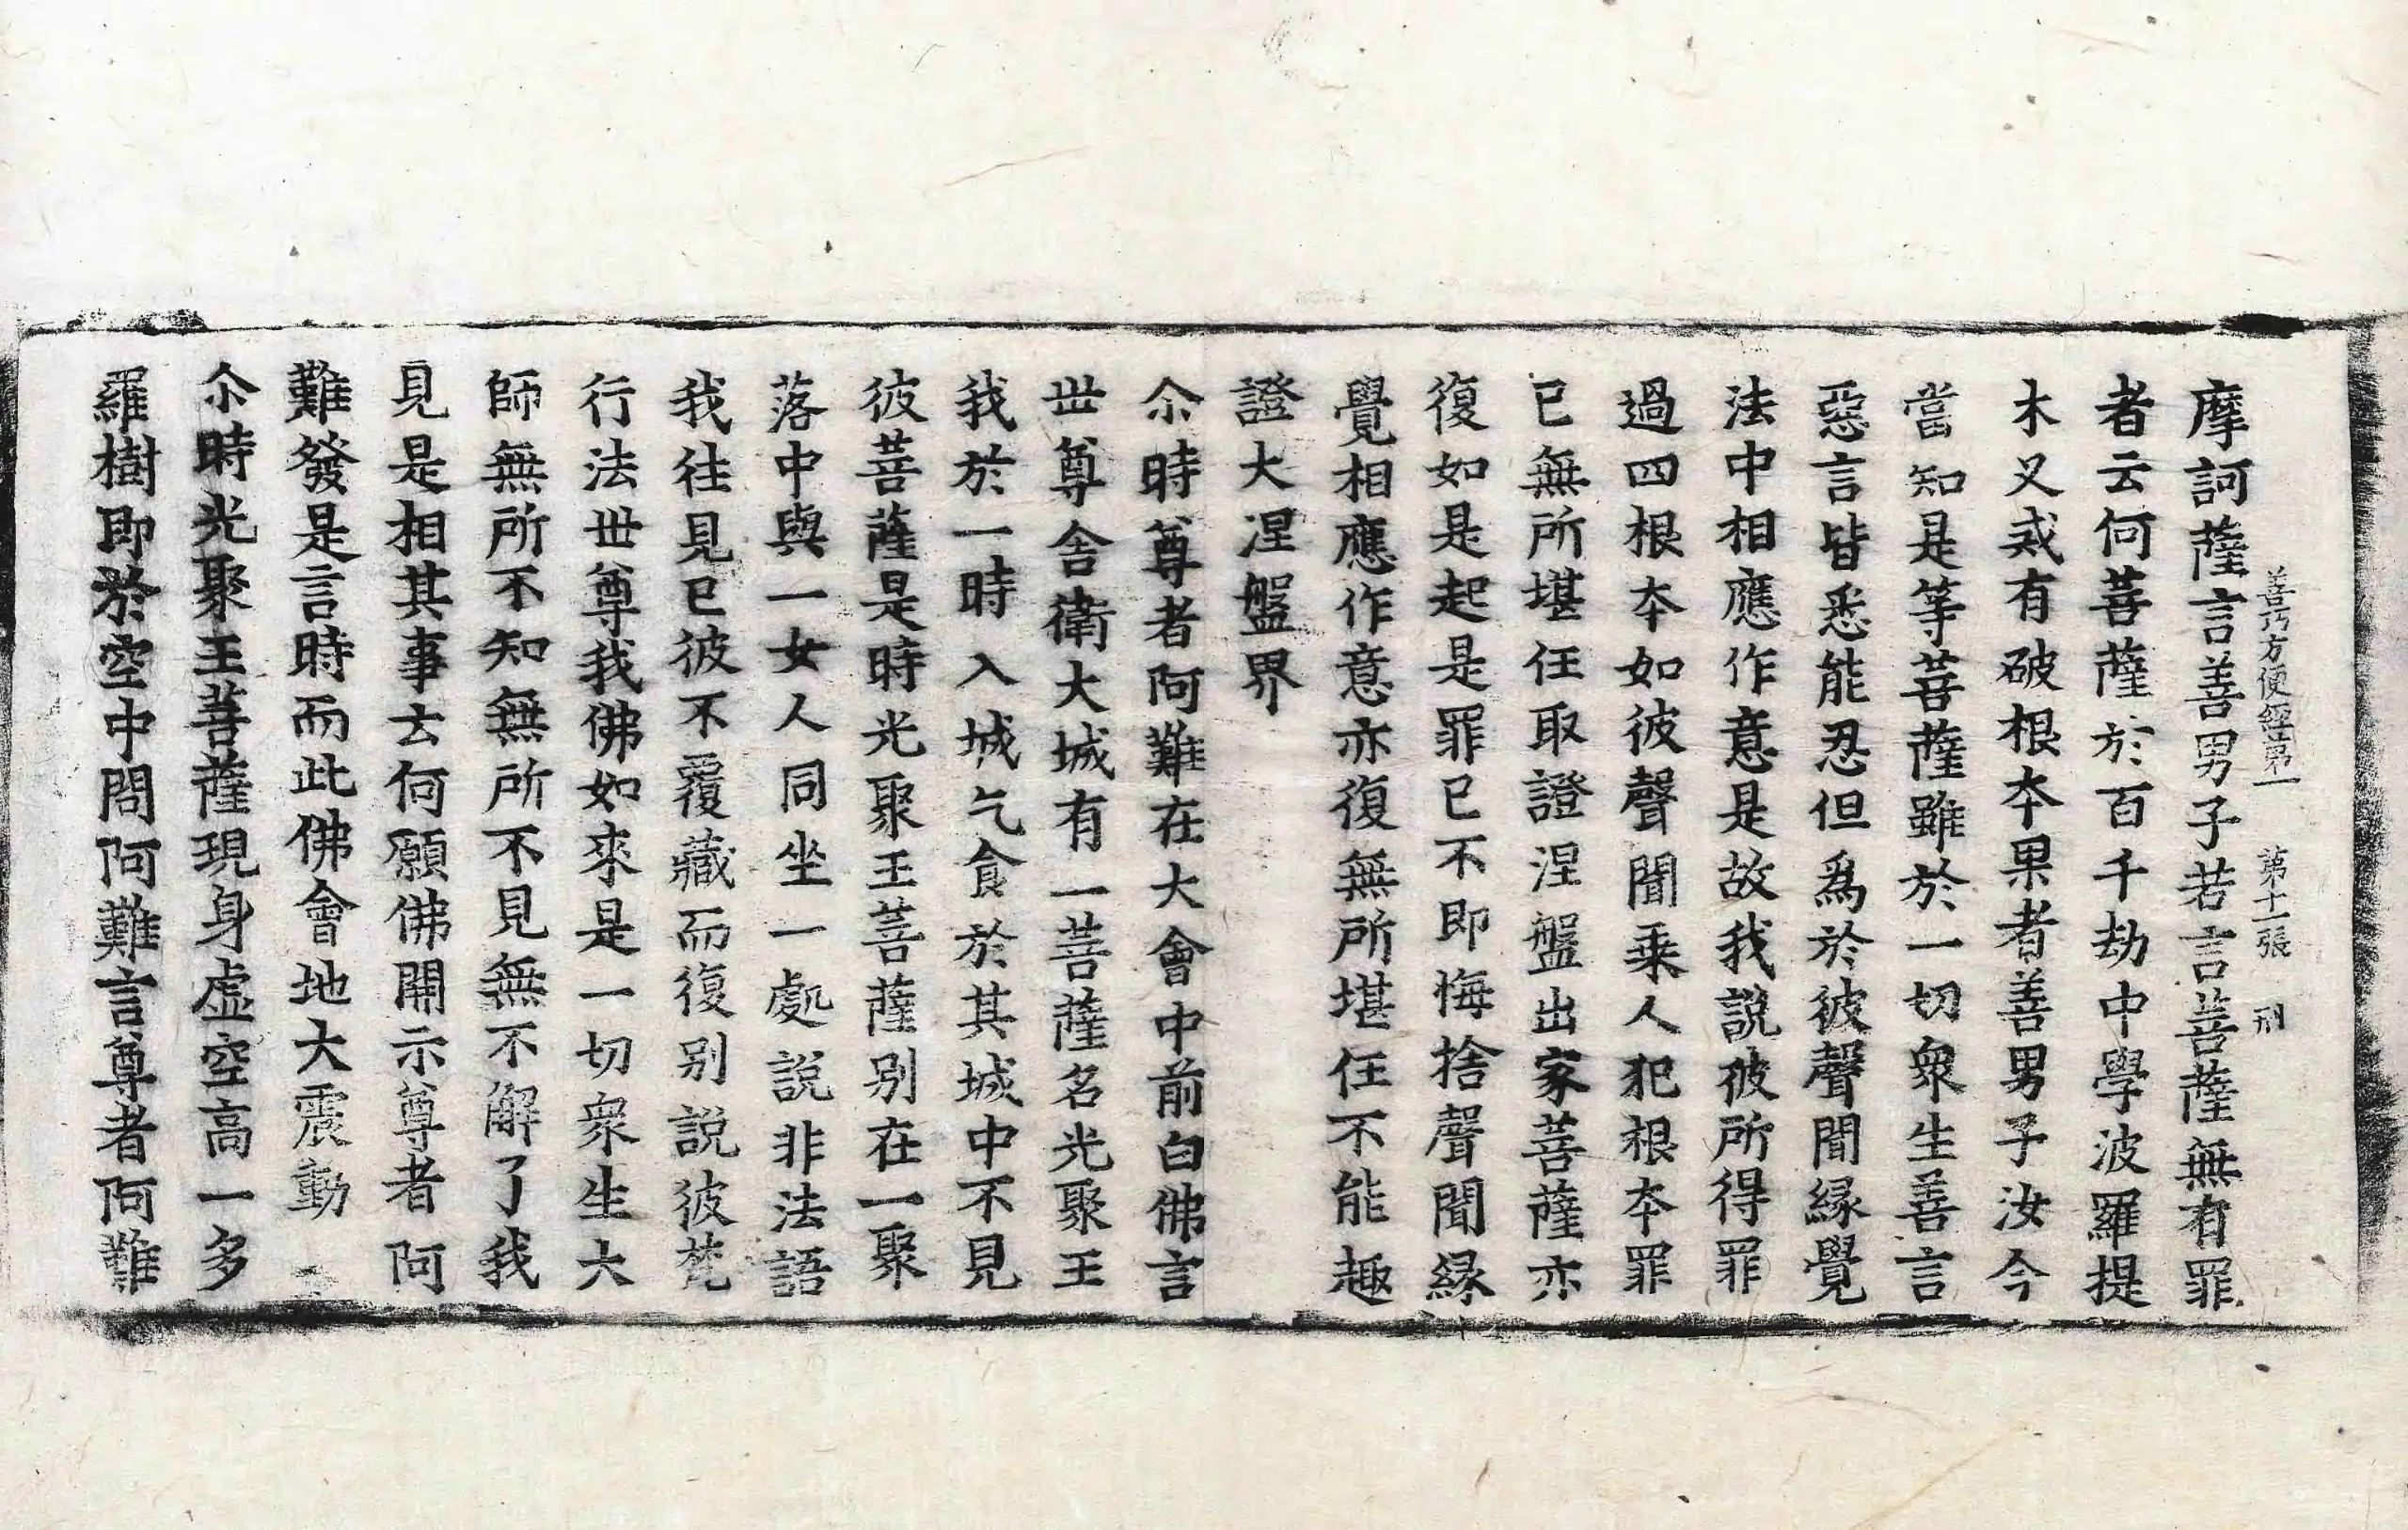 摩訶薩言善男子若言菩薩無有罪
善巧方便經第一 第十一張 刑
者云何菩薩於百千劫中學波羅提
木叉戒有破根夲果者善男子汝今
當知是等菩薩雖於一切衆生善言
惡言皆悉能忍但爲於彼聲聞縁覺
法中相應作意是故我說彼所得罪
過四根夲如彼聲聞乗人犯根夲罪
已無所堪任取證涅盤出家菩薩亦
復如是起是罪已不即悔捨聲聞縁
覺相應作意亦復無所堪任不能趣
證大涅盤界
尒時尊者阿難在大會中前白佛言
世尊舍衛大城有一菩薩名光聚王
我於一時入城乞食於其城中不見
彼菩薩是時光聚王菩薩别在一聚
落中與一女人同坐一處說非法語
我往見已彼不覆藏而復别説彼梵
行法世尊我佛如來是一切衆生大
師無所不知無所不見無不解了我
見是相其事云何願佛開示尊者阿
難發是言時而此佛會地大震動
尒時光聚王菩薩現身虚空高一多
羅樹即於空中問阿難言尊者阿難